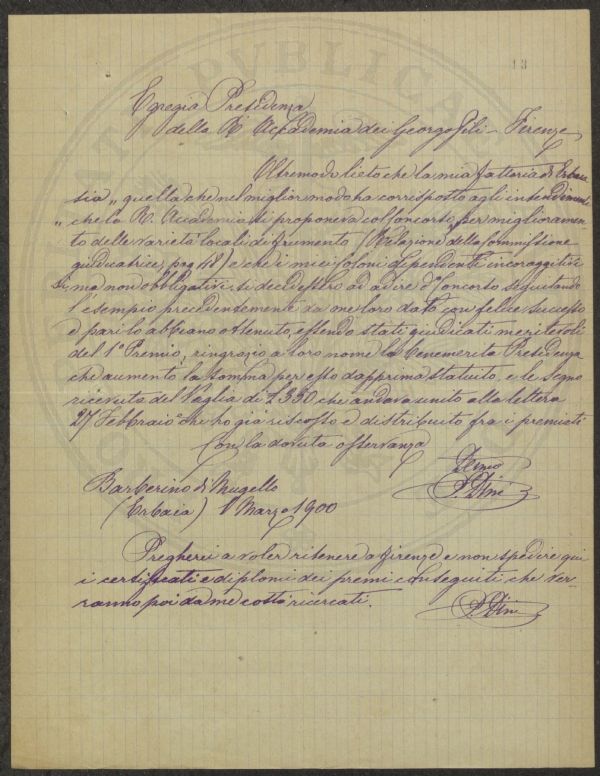 13
Egregia Presidenza
della R. Accademia dei Georgofili – Firenze
Oltremodo lieto che la mia fattoria di Erbaia
sia „ quella che nel miglior modo ha corrisposto agli intendimenti
„ che la R. Accademia si proponeva col Concorso per miglioramen-
to delle varietà locali di frumento (Relazione della Commissione
giudicatrice, pag 48) e che i miei coloni dipendenti incoraggiti
ma non obbligativi si decidessero ad adire al Concorso seguitando
l'esempio precedentemente da me loro dato con felice successo
e pari lo abbiano ottenuto, essendo stati giudicati meritevoli
del 1º Premio, ringrazio a loro nome la benemerita Presidenza
che aumentò la somma per esso dapprima statuito, e le segno
ricevuta del Vaglia di £ 350 che andava unito alla lettera
27 Febbraio che ho già riscosso e distribuito fra i premiati
Con la dovuta osservanza
Barberino di Mugello
(Erbaia) 1 Marzo 1900
Dini
Pregherei a voler ritenere a Firenze e non spedire qui
i certificati e diplomi dei premi conseguiti che ver-
ranno poi da me costà ricercati.
Dini